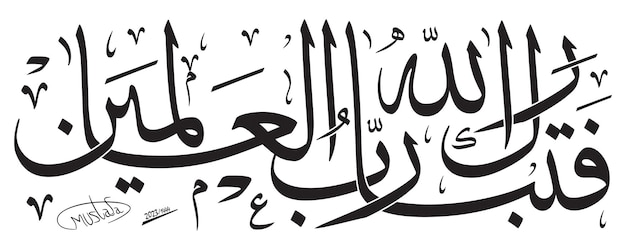 فتبارك الله رب العالمين
Mustafa